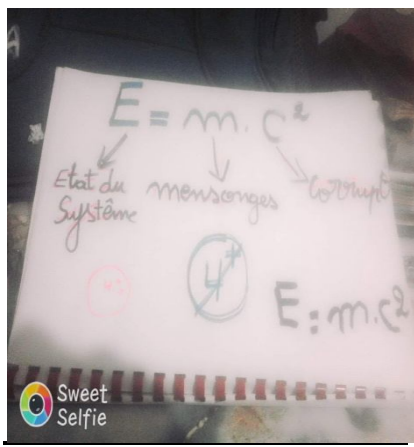 E = m . c²
Etat du
Système
mensonges
Corrupt
4+
4+
E = m.c²
Sweet
Selfie